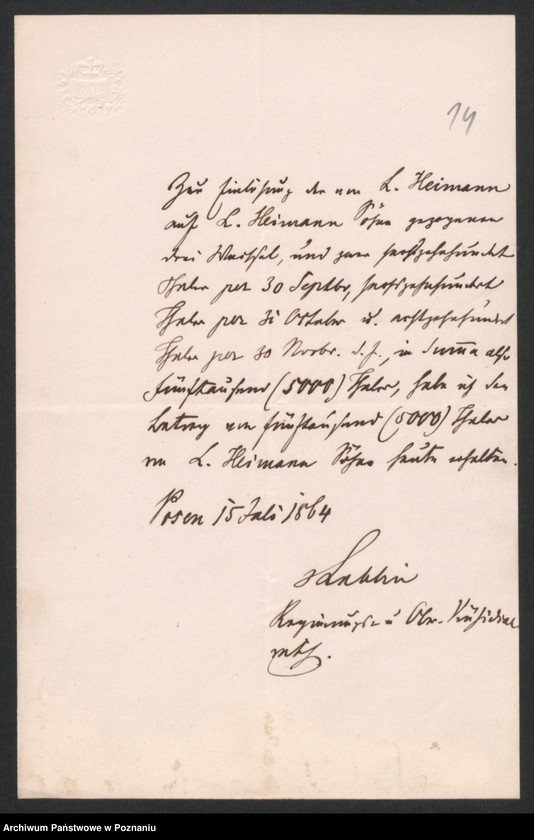 14
Zur Einlösung der von L. Heimann
auf L. Heimann Söhne gezogenen
drei Wechsel, und zwar sechszehnhundert
Thaler per 30 Septbr, sechszehnhundert
Thaler per 31 October u. achtzehnhundert
Thaler per 30 Novbr. d. J., in Summa also
fünftausend (5000) Thaler, habe ich den
Betrag von fünftausend (5000) Thaler
von L. Heimann Söhne heute erhalten.
Posen 15 Juli 1864
Regierungs- u Ober-Präsidial
Archiwum Państwowe w Poznaniu